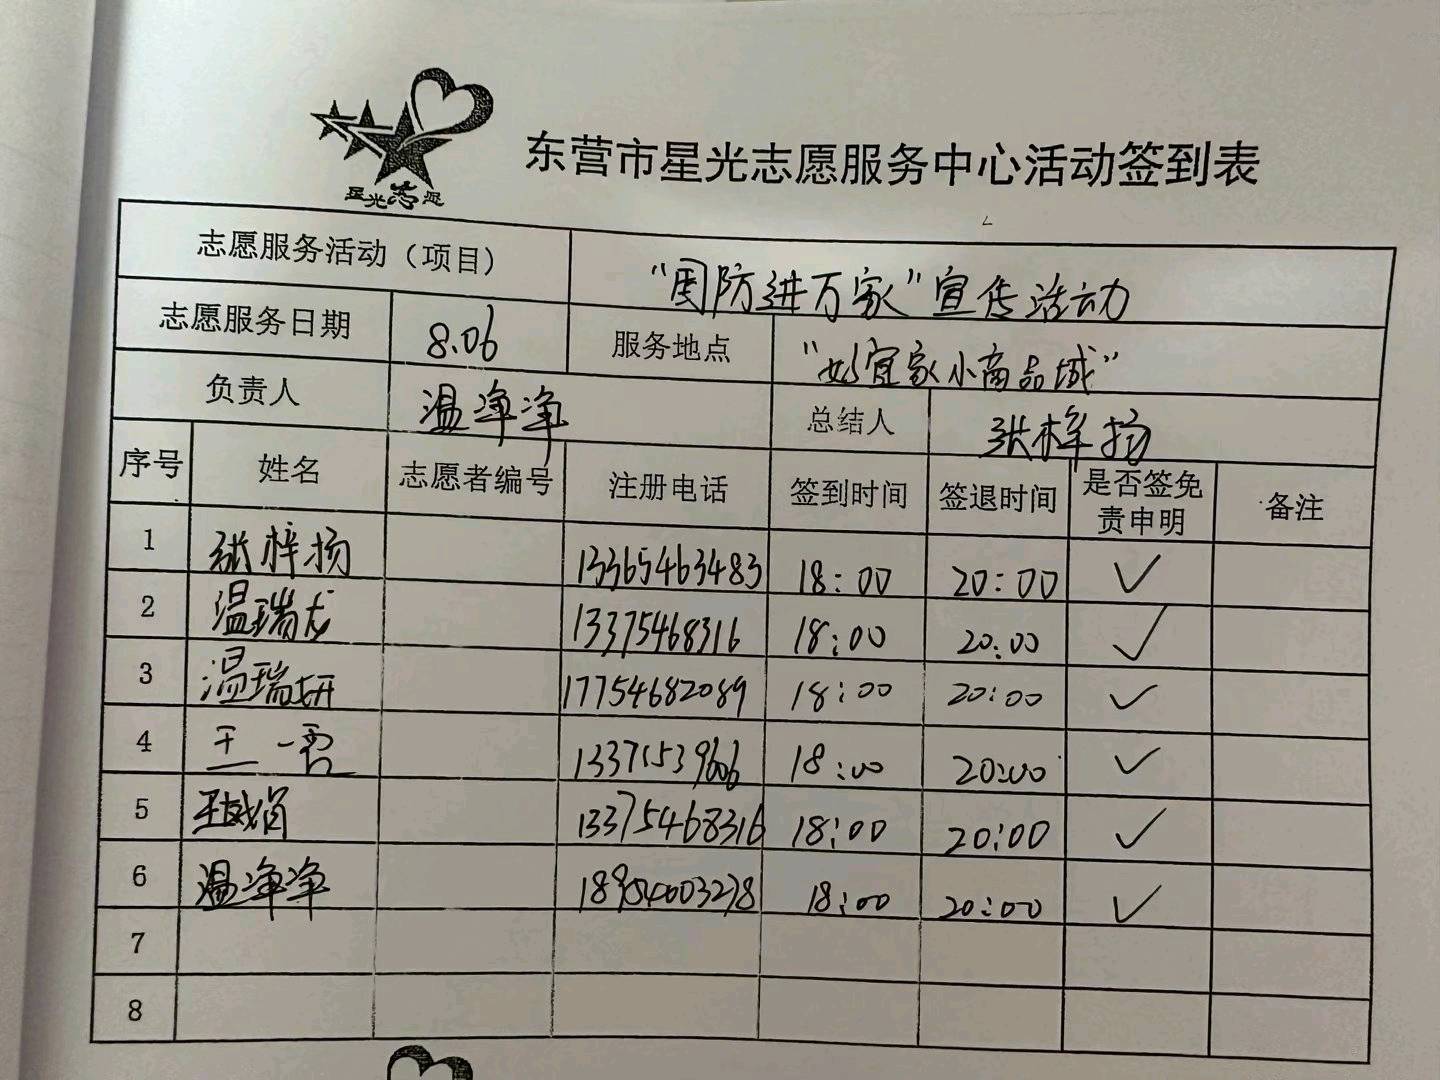 星光志愿
东营市星光志愿服务中心活动签到表
志愿服务活动（项目） “国防进万家”宣传活动
志愿服务日期 8.06 服务地点 “妙宜家小商品城”
负责人 温净净 总结人 张梓扬
序号 姓名 志愿者编号 注册电话 签到时间 签退时间 是否签免责申明 备注
1 张梓扬 13365463483 18:00 20:00 ✓
2 温瑞龙 13375468316 18:00 20:00 ✓
3 温瑞妍 17754682089 18:00 20:00 ✓
4 王一 18:00 20:00 ✓
5 13375468316 18:00 20:00 ✓
6 温净净 18:00 20:00 ✓
7
8